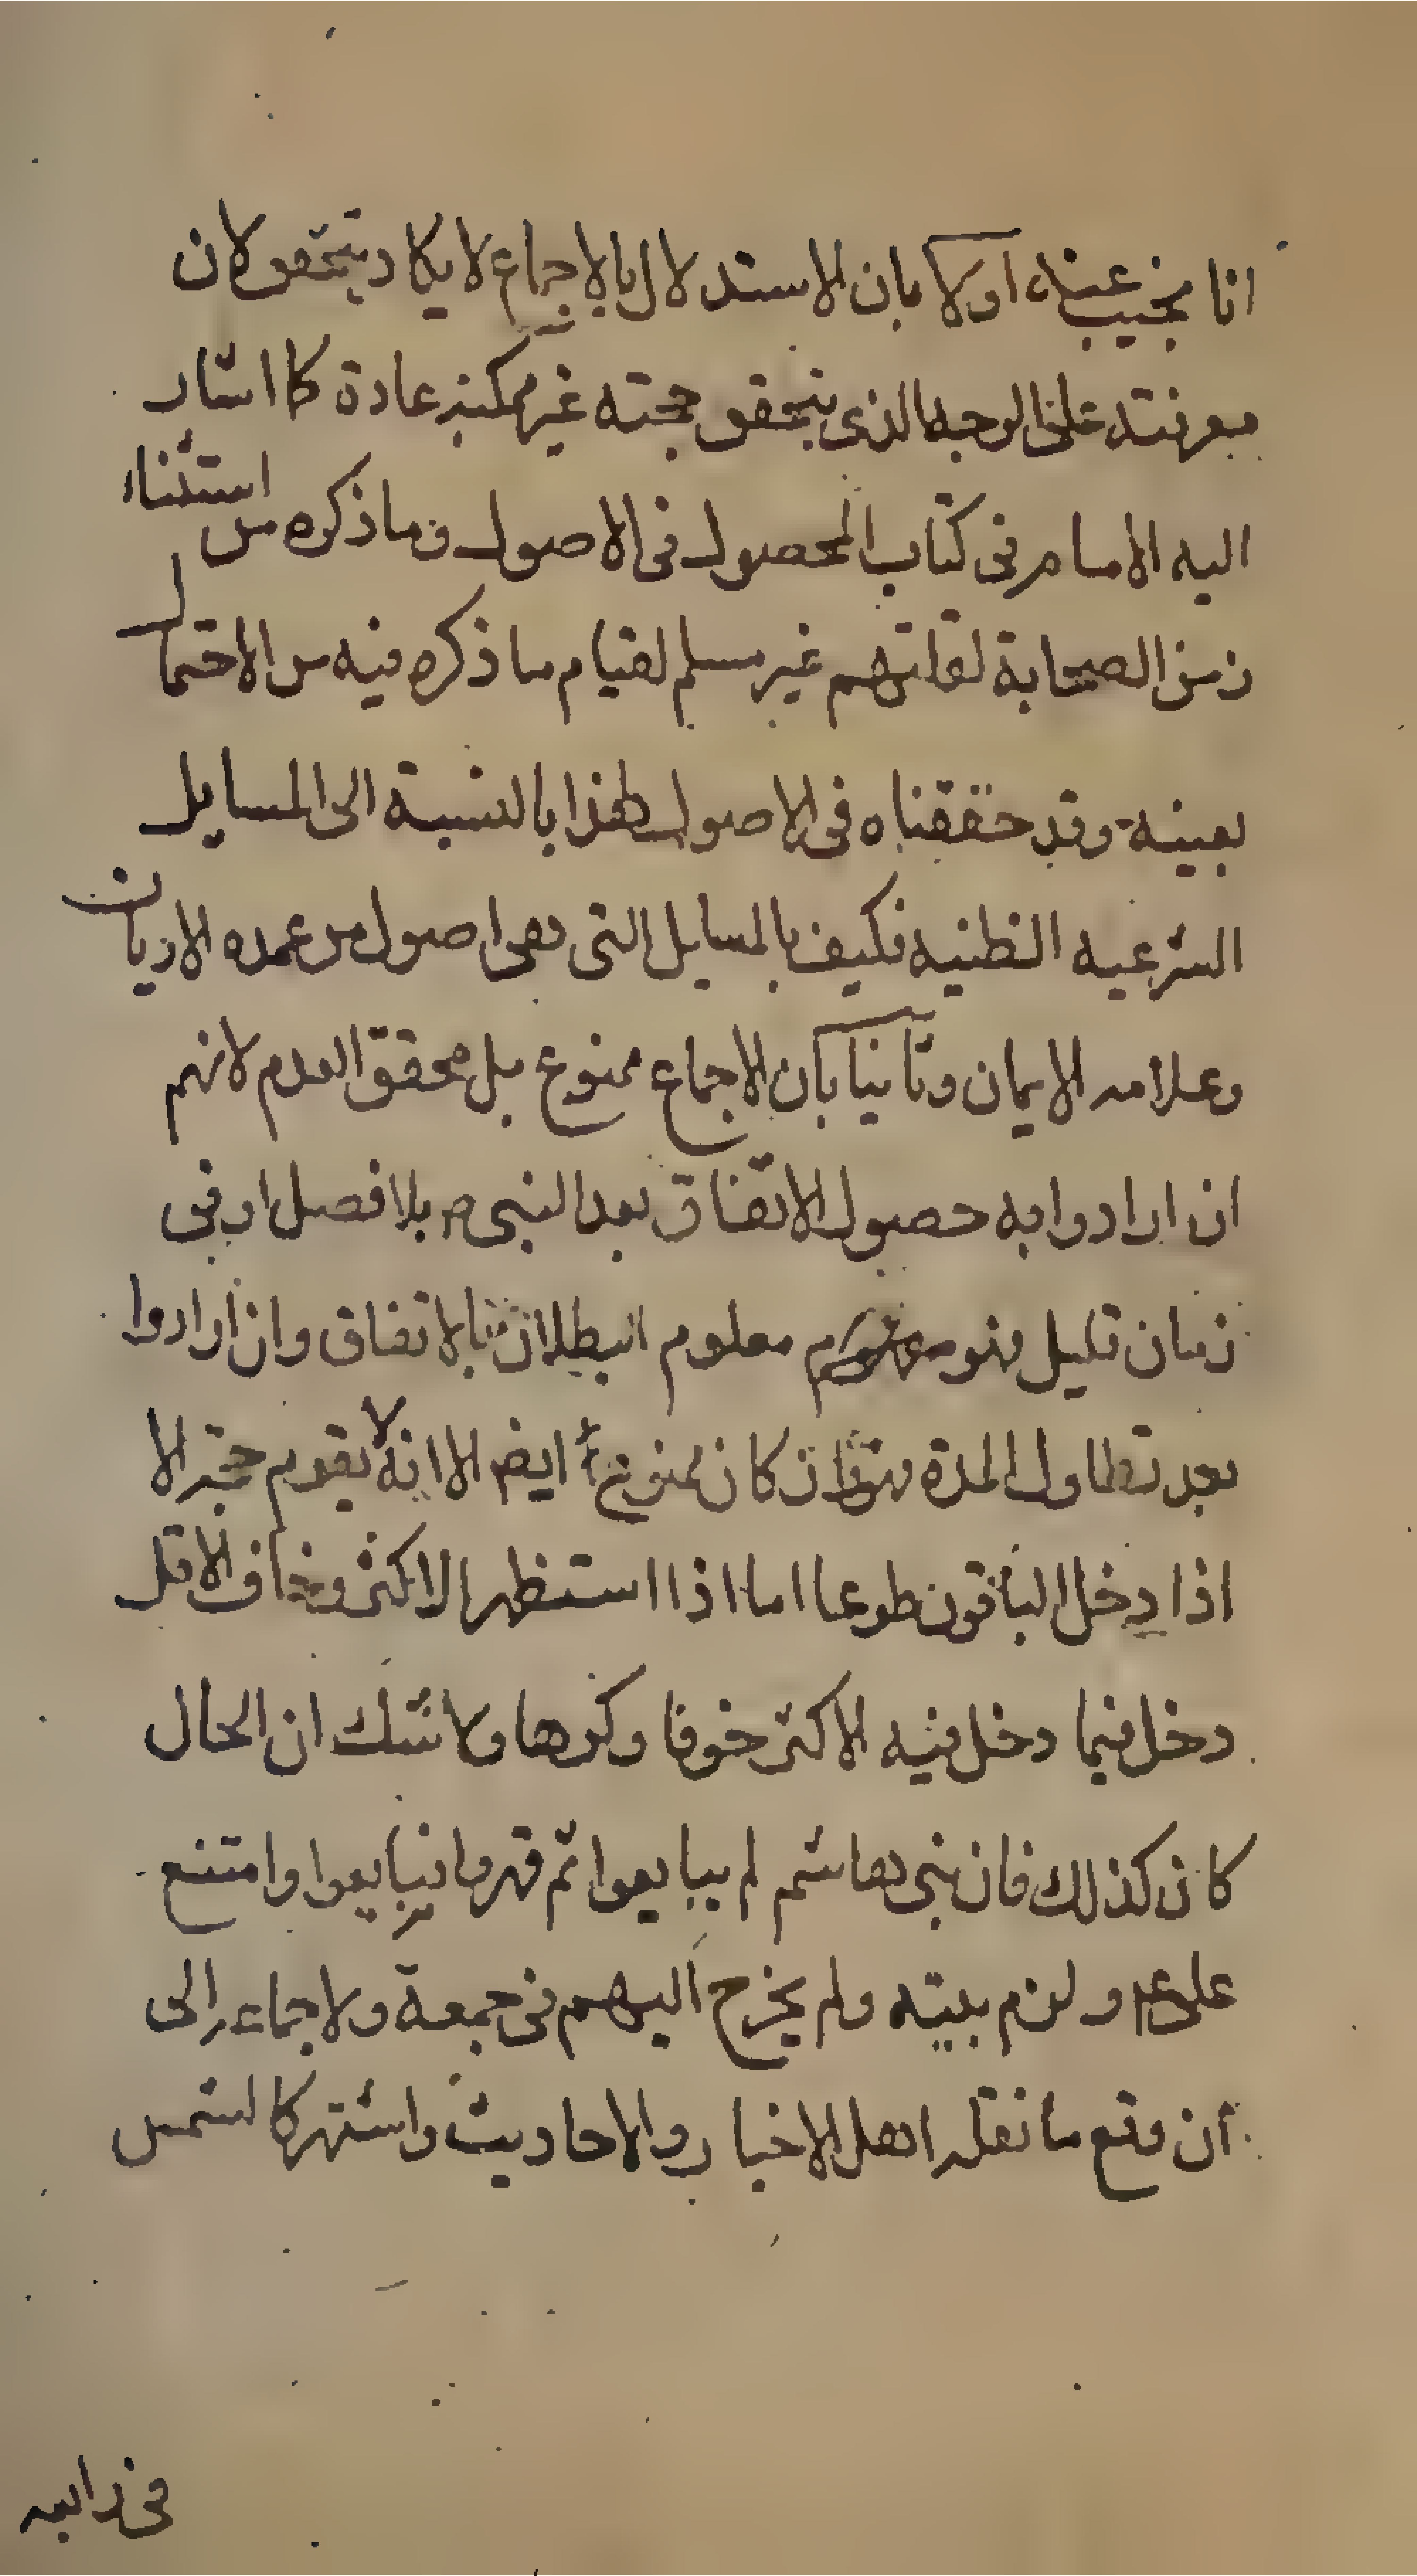 انا نجيب عنه اولا بان الاستدلال بالاجماع لا يكاد يتحقق لان
معرفته على الوجه الذى يتحقق حجته غير ممكنة عادة كما اشار
اليه الامام فى كتاب المحصول فى الاصول وما ذكره من استثناء
زمن الصحابة لقلتهم غير مسلم لقيام ما ذكره فيه من الاحتمال
بعينه وقد حققناه فى الاصول هذا بالنسبة الى المسايل
الشرعيه الظنيه فكيف بالمسايل التى هى اصول من عمده الاديان
وعلامه الايمان وثانيا بان الاجماع ممنوع بل محقق العدم لانهم
ان ارادوا به حصول الاتفاق بعد النبى ص بلا فصل او فى
زمان قليل فهو معلوم البطلان بالاتفاق وان ارادوا
بعد تطاول المدة كان ممنوع ايض الا انه لا يقوم حجة الا
اذا دخل الباقون طوعا اما اذا استظهر الاكثر وخاف الاقل
دخل فيما دخل فيه الاكثر خوفا وكرها ولا شك ان الحال
كان كذلك فان بنى هاشم لم يبايعوا ثم قهروا فبايعوا وامتنع
على ع م ولزم بيته ولم يخرج اليهم فى جمعة ولا جماعه الى
ان وقع ما نقله اهل الاخبار والاحاديث واشتهر كالشمس
فى رابعه